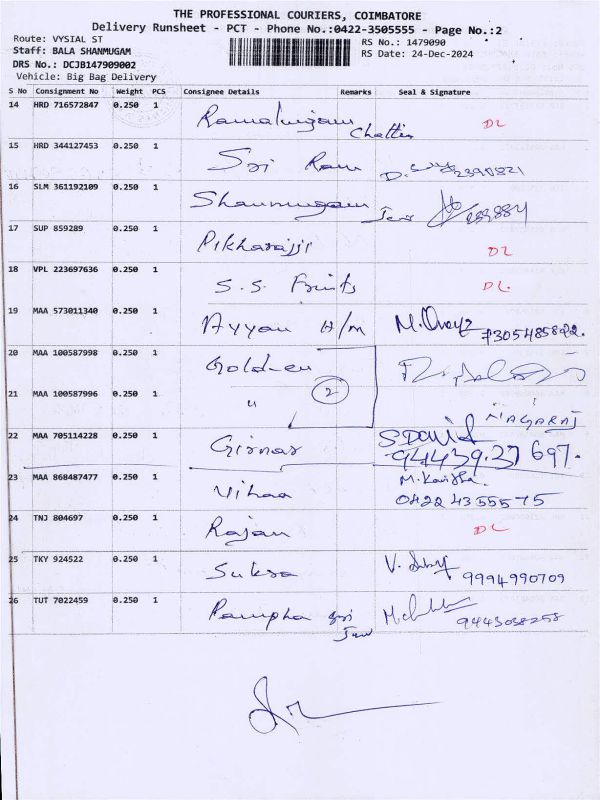 THE PROFESSIONAL COURIERS, COIMBATORE
Delivery Runsheet - PCT - Phone No.:0422-3505555 - Page No.:2
Route: VYSIAL ST
RS No.: 1479090
Staff: BALA SHANMUGAM
RS Date: 24-Dec-2024
DRS No.: DCJB147909002
Vehicle: Big Bag Delivery
S No Consignment No Weight PCS Consignee Details Remarks Seal & Signature
14 HRD 716572847 0.250 1 Ramalingam Chettiar DL
15 HRD 344127453 0.250 1 Sri Ram
16 SLM 361192109 0.250 1 Shanmugam Jew
17 SUP 859289 0.250 1 Pikharajji DL
18 VPL 223697636 0.250 1 S.S. Fruits DL.
19 MAA 573011340 0.250 1 Ayyan H/M
20 MAA 100587998 0.250 1 Golden
21 MAA 100587996 0.250 1 " 2
NAGARAJ
22 MAA 705114228 0.250 1 Girnar S David
94439.37697.
23 MAA 868487477 0.250 1 Vihaa M. Kavitha
0422 4355575
24 TNJ 804697 0.250 1 Rajan DL
25 TKY 924522 0.250 1 Suksa 9994990709
26 TUT 7022459 0.250 1 Pampha Jew 9443038258